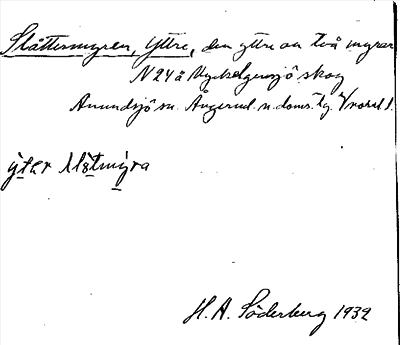 Slåttermyren, Yttre, den yttre av två myrar
N 24 å Myckelgensjö skog
Anundsjö sn. Ångerml. n. doms. tg. V
yter slåtmyra
H. A. Söderberg 1932